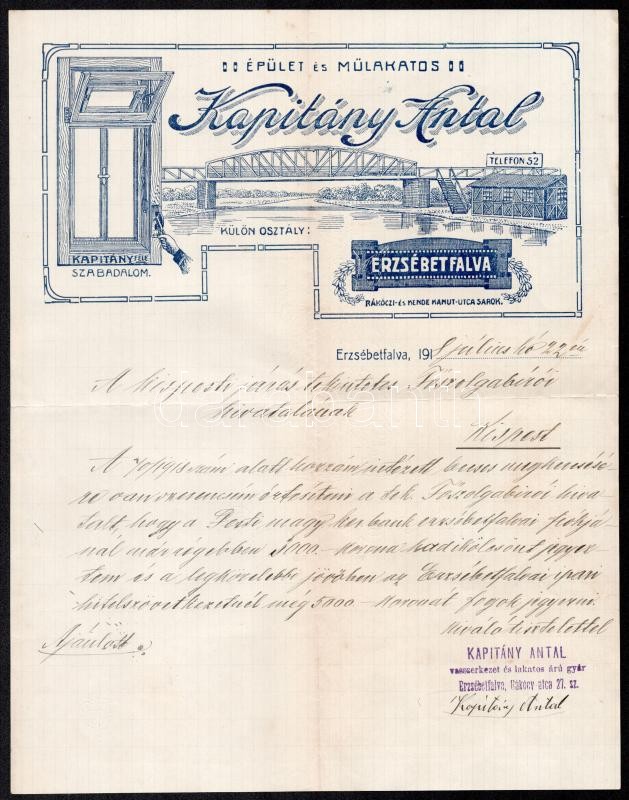 ÉPÜLET és MŰLAKATOS
Kapitány Antal
TELEFON 52
KÜLÖN OSZTÁLY:
KAPITÁNY FÉLE
SZABADALOM.
ERZSÉBETFALVA
RÁKÓCZI-ÉS KENDE KANUT-UTCA SAROK.
Erzsébetfalva, 1918 július hó 22 én
A kispesti járás tekintetes Főszolgabírói
hivatalának
Kispest
A 70/1918 szám alatt hozzám intézett becses megkeresésé
re van szerencsém értesíteni a tek. Főszolgabírói hiva
talt, hogy a Pesti magy. ker. bank erzsébetfalvai fiókjá
nál már régebben 5000 – korona hadikölcsönt jegyez
tem és a legközelebbi jövőben az Erzsébetfalvai ipari
hitelszövetkezetnél még 5000 – koronát fogok jegyezni
kiváló tisztelettel
Ajánlott
KAPITÁNY ANTAL
vasszerkezet és lakatos árú gyár
Erzsébetfalva, Rákócy-utca 27. sz.
Kapitány Antal
darabanth